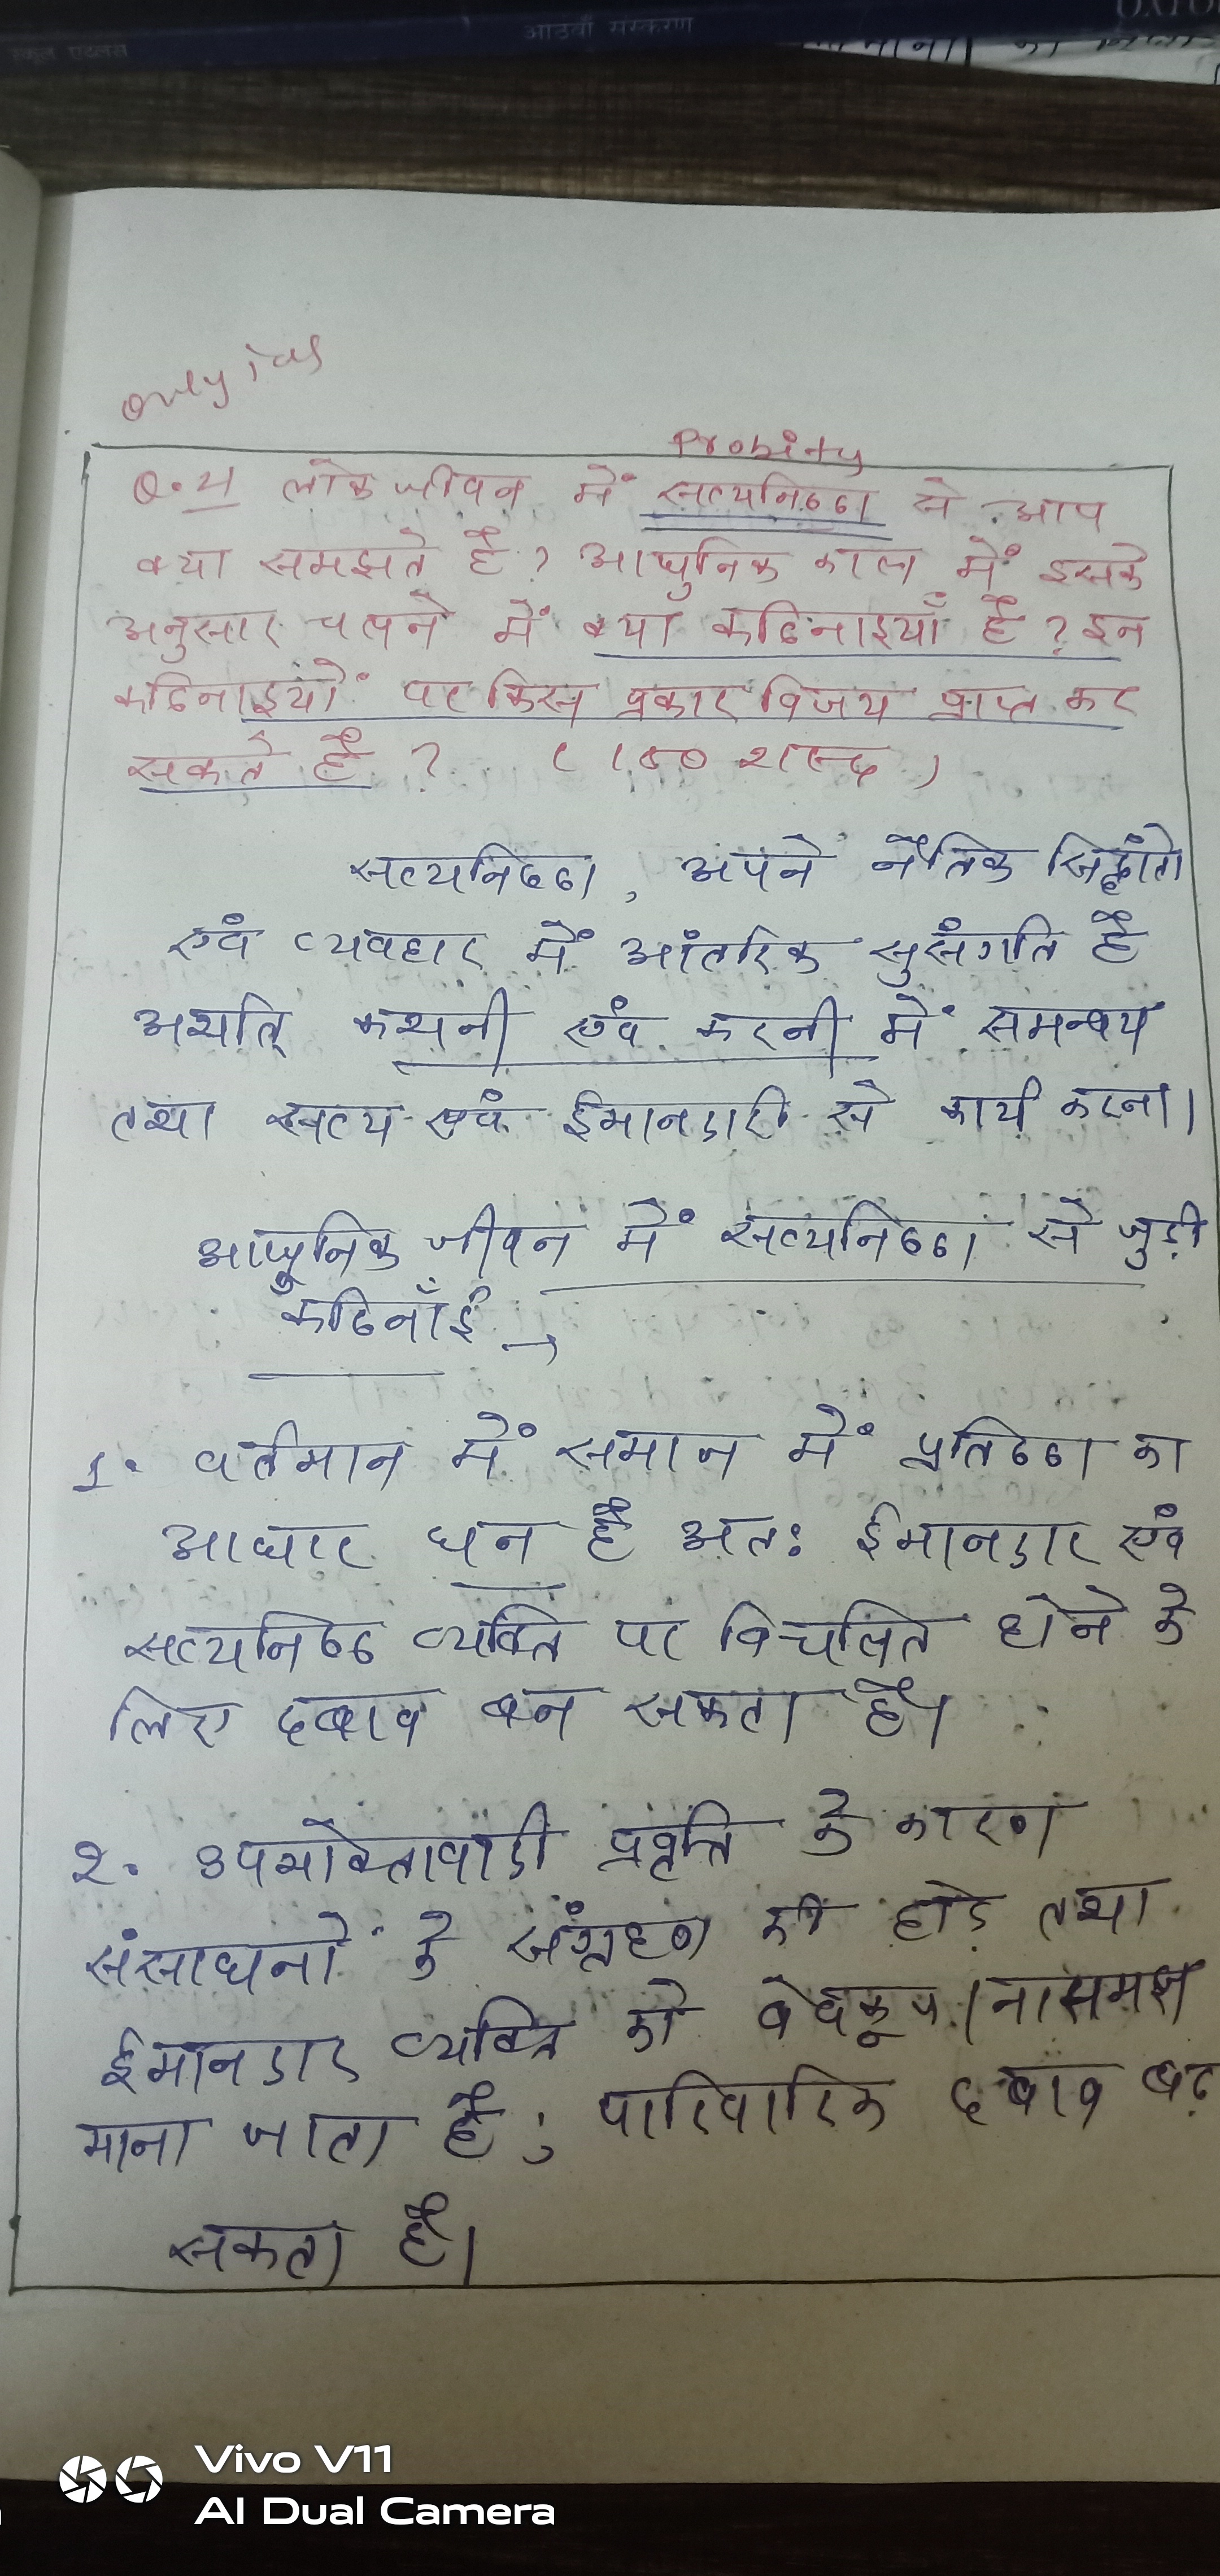 स्कूल एटलस
आठवाँ संस्करण
only ias
Probity
Q.4 लोक जीवन में सत्यनिष्ठा से आप
क्या समझते हैं? आधुनिक काल में इसके
अनुसार चलने में क्या कठिनाइयाँ हैं? इन
कठिनाइयों पर किस प्रकार विजय प्राप्त कर
सकते हैं? (150 शब्द)
सत्यनिष्ठा, अपने नैतिक सिद्धांतो
एवं व्यवहार में आंतरिक सुसंगति है
अर्थात् कथनी एंव करनी में समन्वय
तथा सत्य एवं ईमानदारी से कार्य करना।
आधुनिक जीवन में सत्यनिष्ठा से जुड़ी
कठिनाँई →
1. वर्तमान में समाज में प्रतिष्ठा का
आधार धन है अतः ईमानदार एंव
सत्यनिष्ठ व्यक्ति पर विचलित होने के
लिए दबाव बन सकता है।
2. उपभोक्तावादी प्रवृत्ति के कारण
संसाधनों के संग्रहण की होड़ तथा
ईमानदार व्यक्ति को बेवकूफ/नासमझ
माना जाता है; पारिवारिक दबाव बढ़
सकता है।
Vivo V11
AI Dual Camera